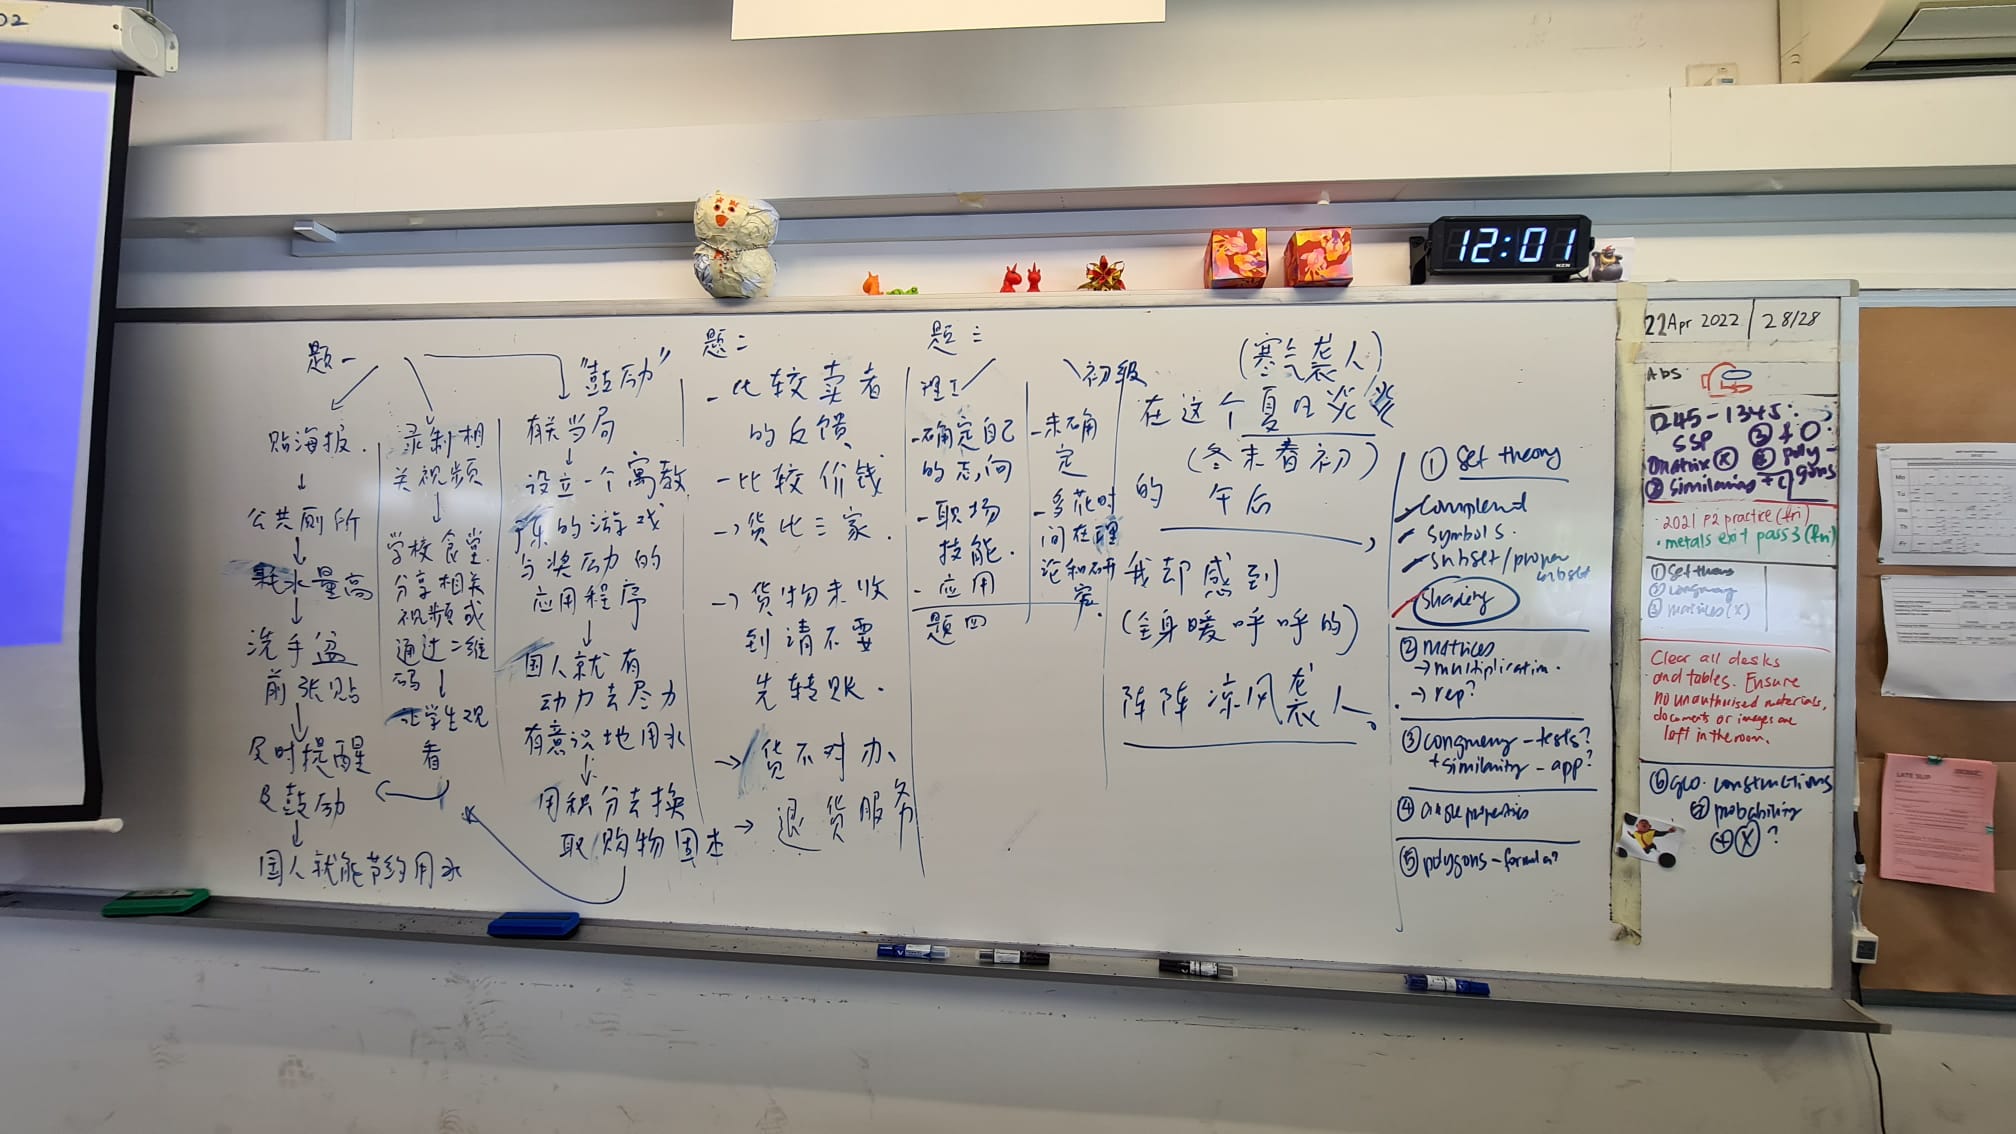 题一
贴海报.
公共厕所
耗水量高
洗手盆
前张贴
及时提醒
及鼓励
国人就能节约用水
录制相
关视频
学校食堂
分享相关
视频或
通过二维
码
让学生观
看
"鼓励"
有关当局
设立一个寓教
于乐的游戏
与奖励的
应用程序
国人就有
动力去尽力
有意识地用水
用积分去换
取购物固本
题二
- 比较卖者
的反馈
- 比较价钱
→货比三家.
→货物未收
到请不要
先转账.
→货不对办、
→退货服务
题三
理工
- 确定自己
的志向
- 职场
技能.
- 应用
题四
初级
- 未确
定
- 多花时
间在
论和研
究.
(寒气袭人)
在这个夏日炎炎
(冬末春初)
的 午后,
我却感到
(全身暖呼呼的)
阵阵凉风袭人。
① Set theory
symbols.
- subset/proper
subset
Shading
② matrices
→ multiplication.
→ rep?
③ congruency - tests?
+ similarity - app?
④ angle properties
⑤ polygons - formula?
22 Apr 2022 / 28/28
Abs
1245-1345:
SSP
matrix ⓧ
② similarity +
④ poly-
gons
· 2021 P2 practice (fri)
· metals exit pass 3 (fri)
① Set theory
② congruency
③ matrices (x)
Clear all desks
and tables. Ensure
no unauthorised materials,
documents or images are
left in the room.
⑥ geo. constructions
⑤ probability
⊕ ⓧ ?
12:01
LATE SLIP